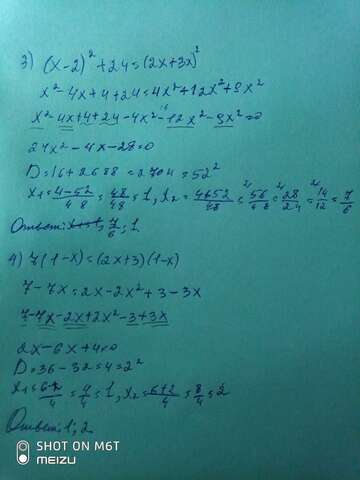 3) (x-2)² + 24 = (2x+3x)²
x² - 4x + 4 + 24 = 4x² + 12x² + 9x²
x² - 4x + 4 + 24 - 4x² - 12x² - 9x² = 0
24x² - 4x - 28 = 0
D = 16 + 2688 = 2704 = 52²
x₁ = 4-52/48 = 48/48 = 1, x₂ = 4+52/48 = 56/48 = 28/24 = 14/12 = 7/6
Ответ: 7/6; 1
4) 7(1-x) = (2x+3)(1-x)
7 - 7x = 2x - 2x² + 3 - 3x
7 - 7x - 2x + 2x² - 3 + 3x
2x - 6x + 4 = 0
D = 36 - 32 = 4 = 2²
x₁ = 6-2/4 = 4/4 = 1, x₂ = 6+2/4 = 8/4 = 2
Ответ: 1; 2
SHOT ON M6T
MEIZU